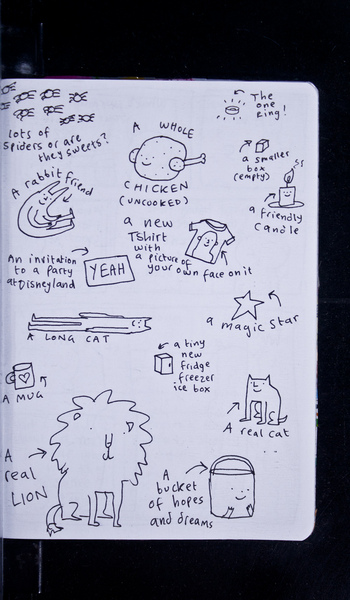 The
one
ring!
lots of
spiders or are
they sweets?
A WHOLE
CHICKEN
(UNCOOKED)
a smaller
box
(empty)
A rabbit friend
a friendly
candle
a new
Tshirt
with
a picture of
your own face on it
An invitation
to a party
at Disneyland
YEAH
a magic star
A LONG CAT
a tiny
new
fridge
freezer
ice box
A MUG
A real cat
A
real
LION
A
bucket
of hopes
and dreams